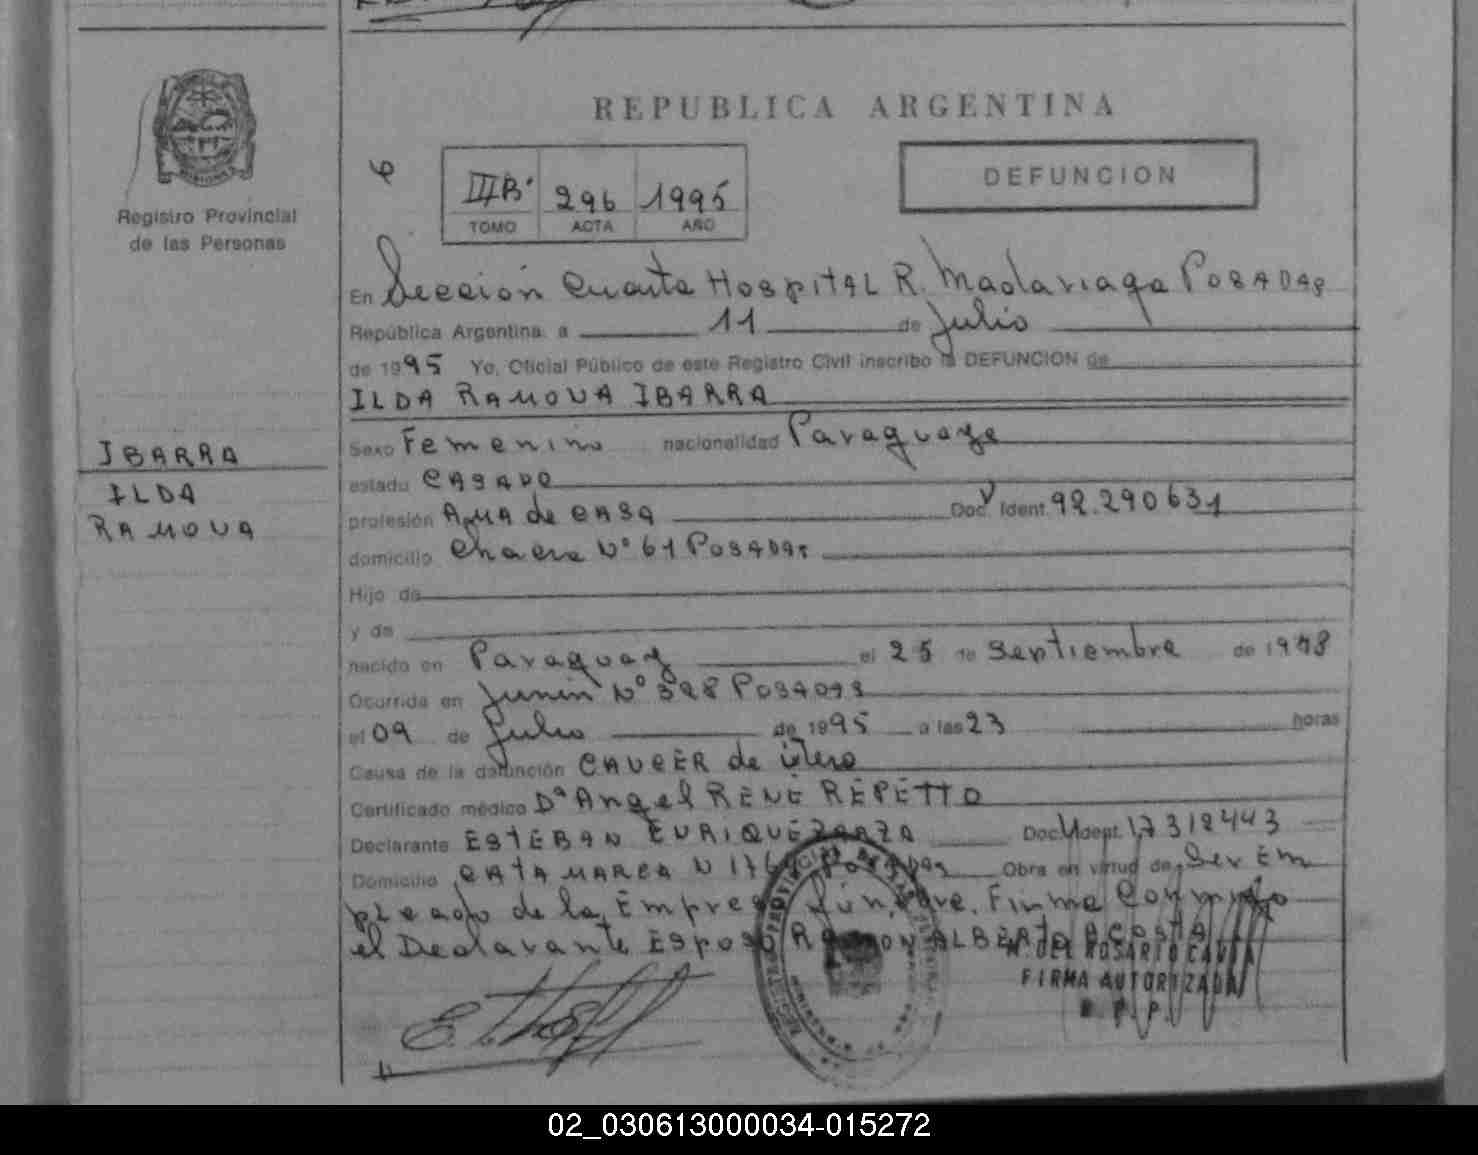 REPUBLICA ARGENTINA
DEFUNCION
IIIB' 296 1995
TOMO ACTA AÑO
Registro Provincial
de las Personas
En Sección Cuarta HospITAL R. Madariaga POSADAS
República Argentina a 11 de Julio
de 1995 Yo, Oficial Público de este Registro Civil inscribo la DEFUNCION de
ILDA RAMONA IBARRA
Sexo Femenino nacionalidad Paraguaya
IBARRA
ILDA
RAMONA
estado CASADO
profesión AMA de CASA Doc. Ident. 92.290631
domicilio Chacra Nº 61 POSADAS
Hijo de
y de
nacido en Paraguay el 25 de Septiembre de 19
Ocurrida en Junin Nº 328 POSADAS
el 09 de Julio de 1995 a las 23 horas
Causa de la defunción CANCER de útero
Certificado médico Dº Angel RENÉ REPETTO
Declarante ESTEBAN ENRIQUEZ Doc. Ident. 17312443
Domicilio CATAMARCA N POSADAS Obra en virtud de Ser Em
pleado de la Empresa Fúnebre. Firma Conmigo
el Declarante Esposo RAMON ALBERTO ACOSTA
M. DEL ROSARIO
FIRMA AUTORIZADA
R. P. P.
02_030613000034-015272